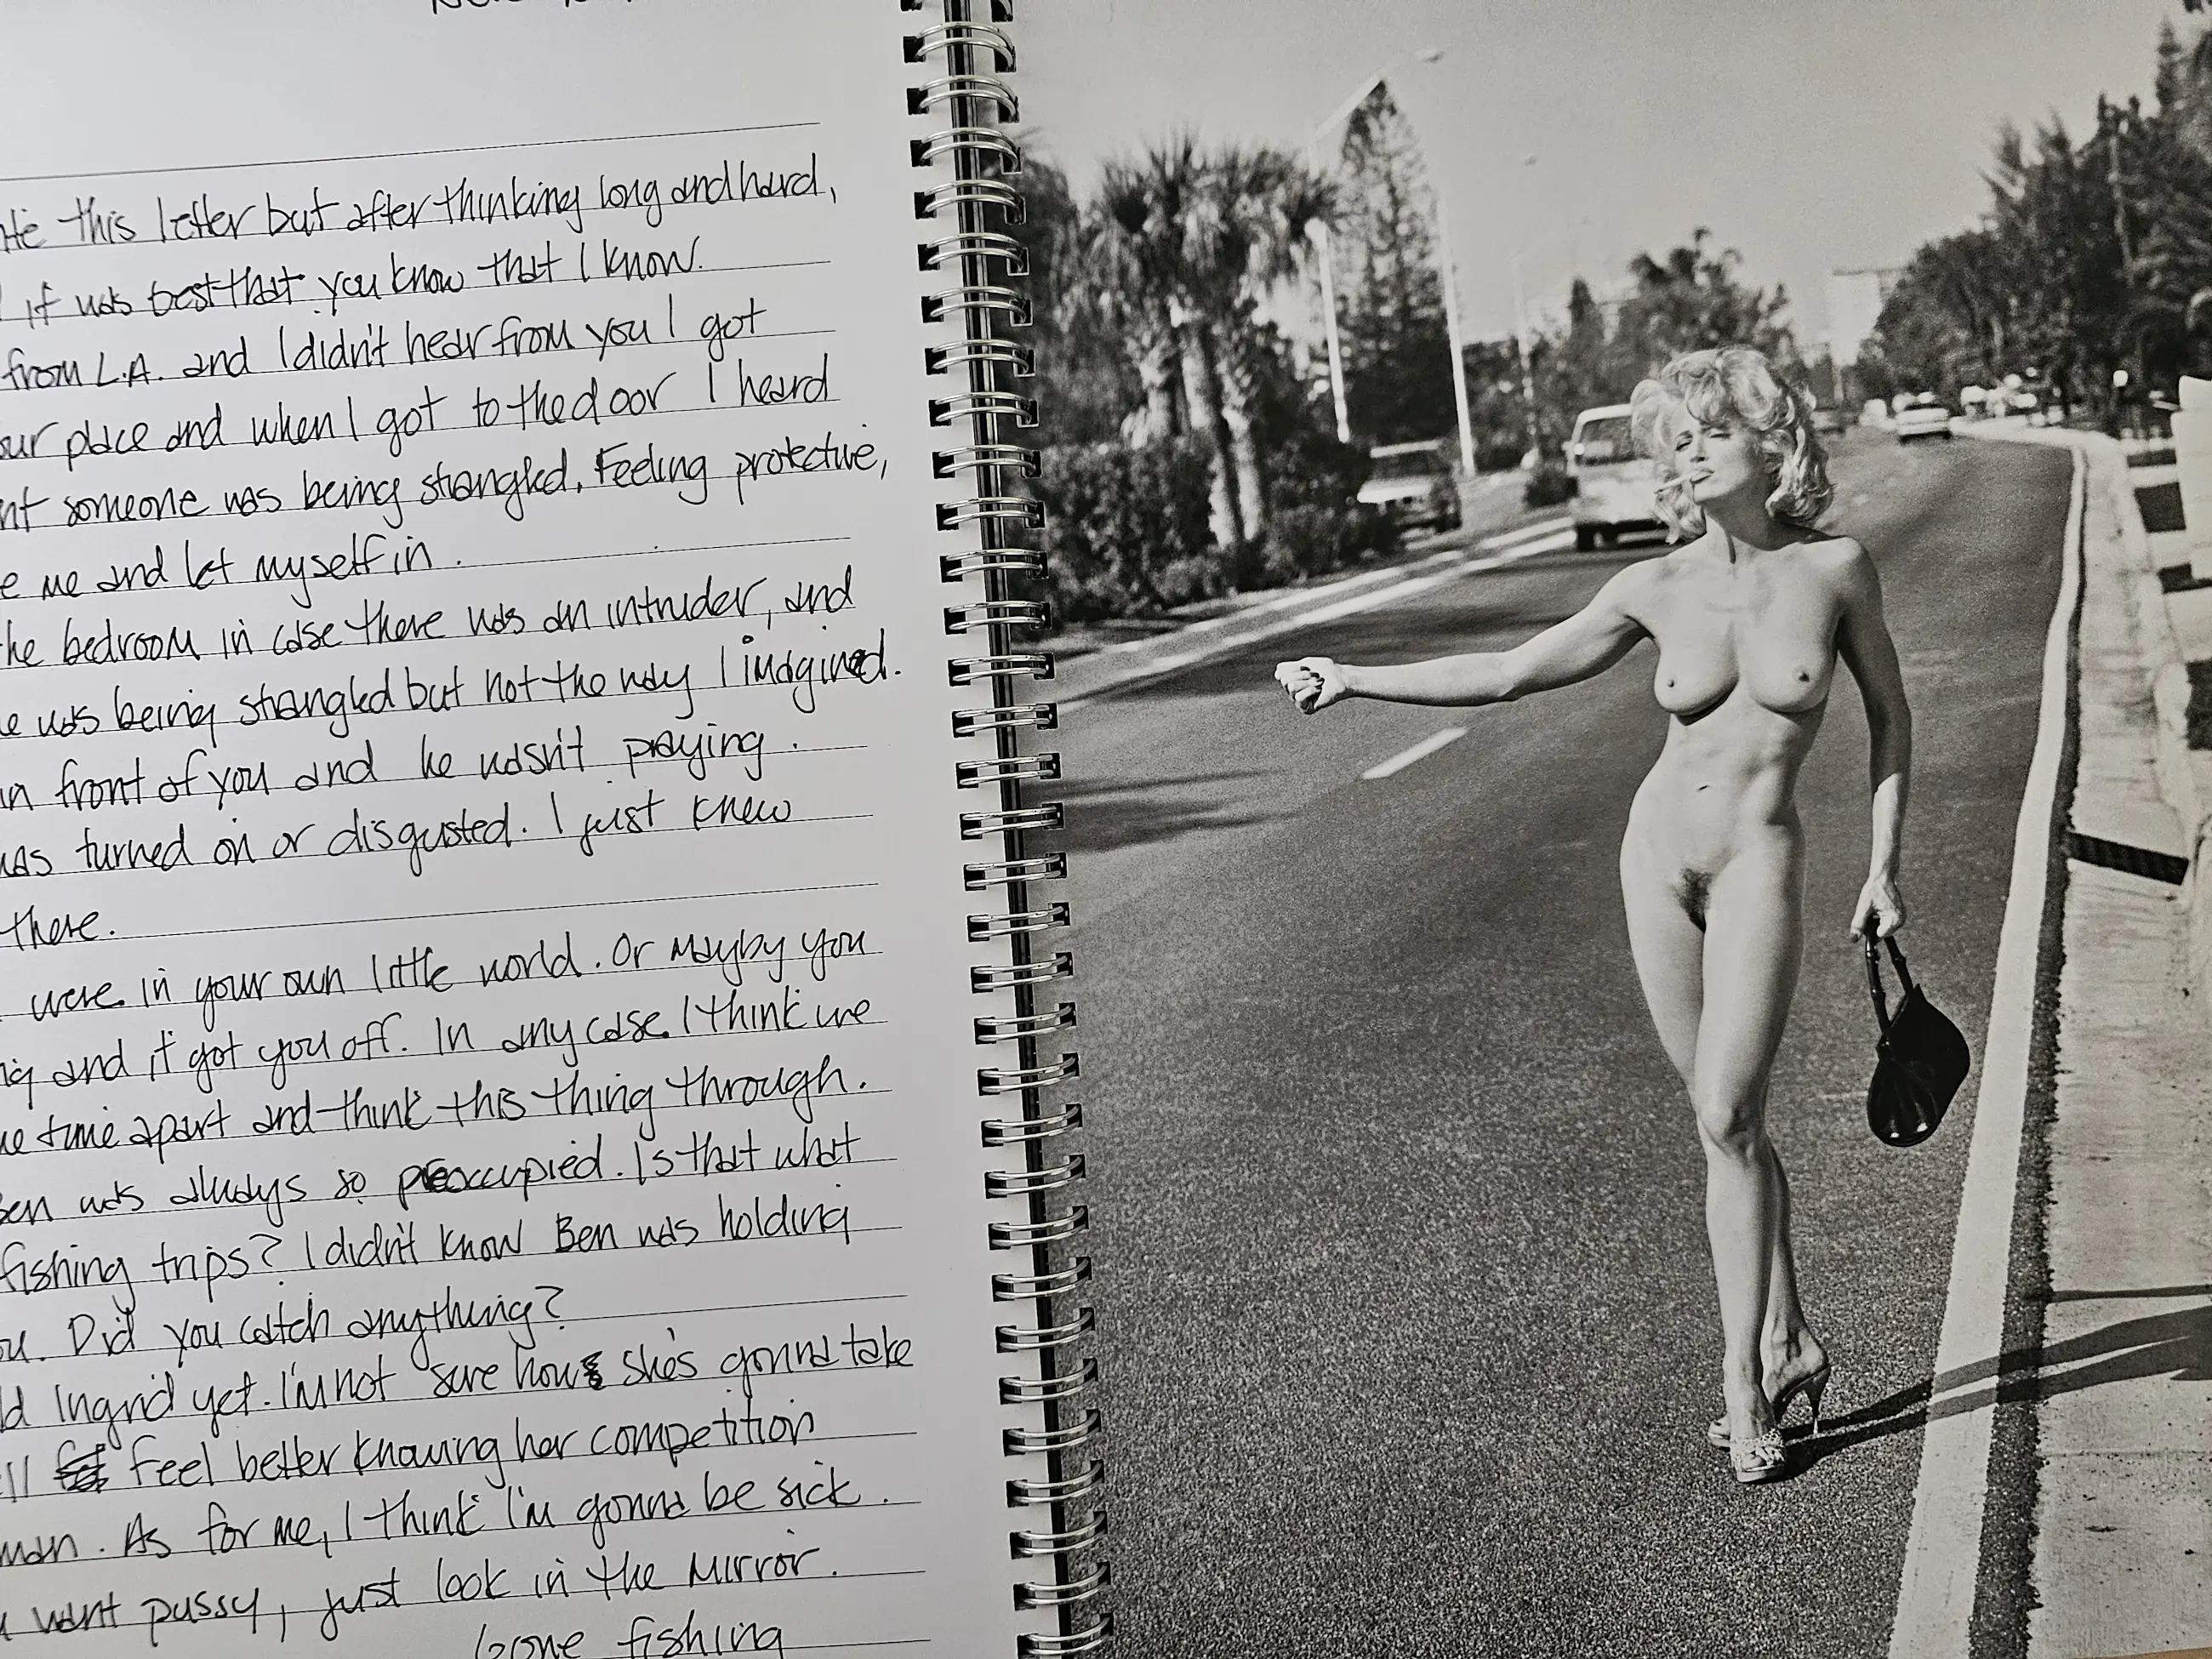 this letter but after thinking long and hard,
if was best that you know that I know.
from L.A. and I didn't hear from you I got
place and when I got to the door I heard
someone was being strangled. Feeling protective,
me and let myself in.
bedroom in case there was an intruder, and
was being strangled but not the way I imagined.
in front of you and he wasn't praying.
turned on or disgusted. I just knew
there.
were in your own little world. Or mayby you
and it got you off. In any case I think we
time apart and think this thing through.
was always so preoccupied. Is that what
fishing trips? I didn't know Ben was holding
Did you catch anything?
Ingrid yet. I'm not sure how she's gonna take
feel better knowing her competition
As for me, I think I'm gonna be sick.
want pussy, just look in the mirror.
Gone fishing